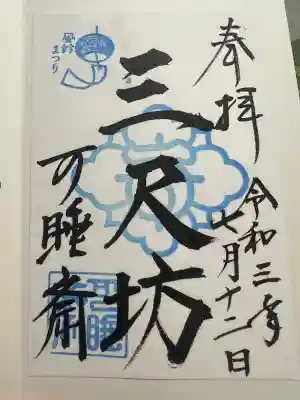 奉拝
令和三年
七月十二日
三尺坊
可睡斎
風鈴
まつり
可睡